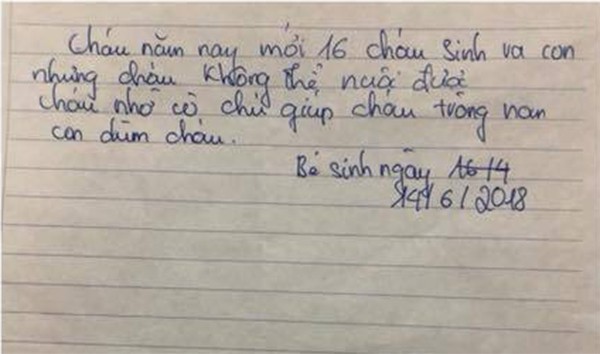 Cháu năm nay mới 16 cháu sinh va con
nhưng cháu không thể nuôi được
cháu nhờ cô chú giúp cháu trông nan
con dùm cháu.
Bé sinh ngày 16 14
14/6/2018